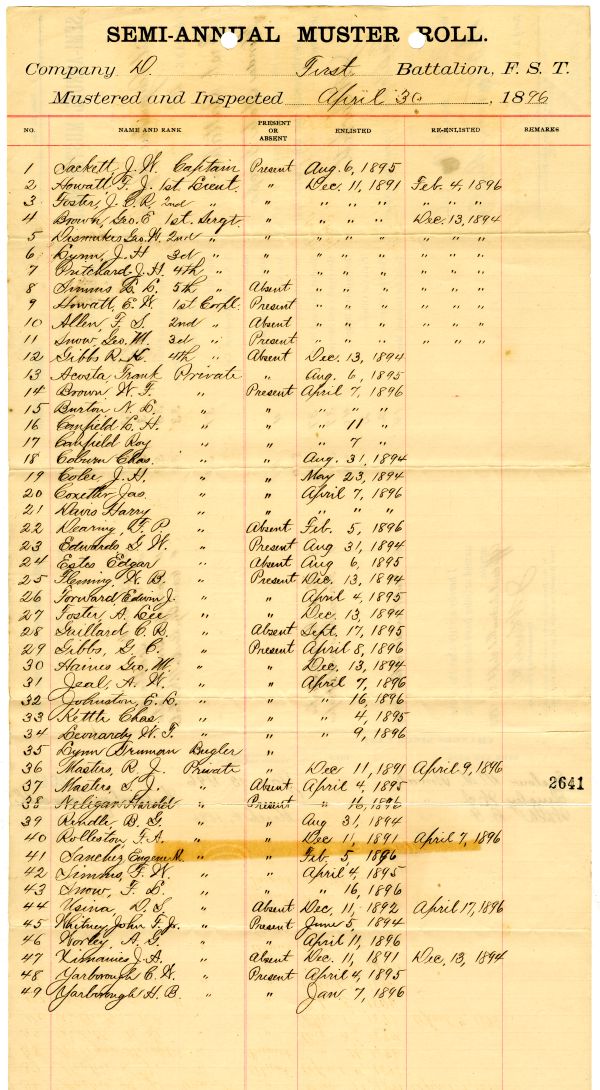 SEMI-ANNUAL MUSTER ROLL.
Company D. First Battalion, F. S. T.
Mustered and Inspected April 30, 1896
NO. NAME AND RANK PRESENT OR ABSENT ENLISTED RE-ENLISTED REMARKS
1 Sackett J. W. Captain Present Aug. 6, 1895
2 Howatt F. J. 1st Lieut. " Dec. 11, 1891 Feb. 4, 1896
3 Foster, J. C. R. 2nd " " " " " " " "
4 Brown, Geo. E 1st Sergt. " " " " Dec. 13, 1894
5 Dismukes Geo. W. 2nd " " " " " " " "
6 Lynn, J. H 3d " " " " " " " "
7 Pritchard J. H. 4th " " " " " " " "
8 Simms L. L. 5th " Absent " " " " " "
9 Howatt, E. W. 1st Corpl. Present " " " " " "
10 Allen, F. S. 2nd " Absent " " " " " "
11 Snow, Geo. M. 3d " Present " " " " " "
12 Gibbs R. K. 4th " Absent Dec. 13, 1894
13 Acosta Frank Private " Aug. 6, 1895
14 Brown W. F. " Present April 7, 1896
15 Burton N. L. " " " " "
16 Canfield L. H. " " " 11 "
17 Canfield Roy " " " 7 "
18 Coburn Chas. " " Aug. 31, 1894
19 Colee J. H. " " May 23, 1894
20 Coxetter Jas. " " April 7, 1896
21 Davis Harry " " " " "
22 Dearing, F. P. " Absent Feb. 5, 1896
23 Edwards G. W. " Present Aug 31, 1894
24 Estes Edgar " Absent Aug 6, 1895
25 Fleming, W. B. " Present Dec. 13, 1894
26 Forward Edwin J. " " April 4, 1895
27 Foster, A. Lee " " Dec. 13, 1894
28 Guillard C. R. " Absent Sept. 17, 1895
29 Gibbs, G. C. " Present April 8, 1896
30 Haines Geo. M. " " Dec. 13, 1894
31 Jeal, A. W. " " April 7, 1896
32 Johnston, E. L. " " " 16, 1896
33 Kettle Chas. " " " 4, 1895
34 Leonardy W. F. " " " 9, 1896
35 Lynn Truman Bugler "
36 Masters, R. J. Private " Dec 11, 1891 April 9, 1896
37 Masters, S. J. " Absent April 4, 1895
2641
38 Neligan Harold " Present " 16, 1896
39 Rendle B. G. " " Aug 31, 1894
40 Rolleston F. A. " " Dec 11, 1891 April 7, 1896
41 Sanchez Eugene R. " " Feb. 5 1896
42 Simms, F. W. " " April 4, 1895
43 Snow, F. L. " " " 16, 1896
44 Usina, D. S. " Absent Dec. 11, 1892 April 17, 1896
45 Whitney John F. Jr. " Present June 5, 1894
46 Worley, A. G. " " April 11, 1896
47 Ximanies J. A. " Absent Dec. 11, 1891 Dec. 13, 1894
48 Yarborough C. W. " Present April 4, 1895
49 Yarborough H. B. " " Jan 7, 1896